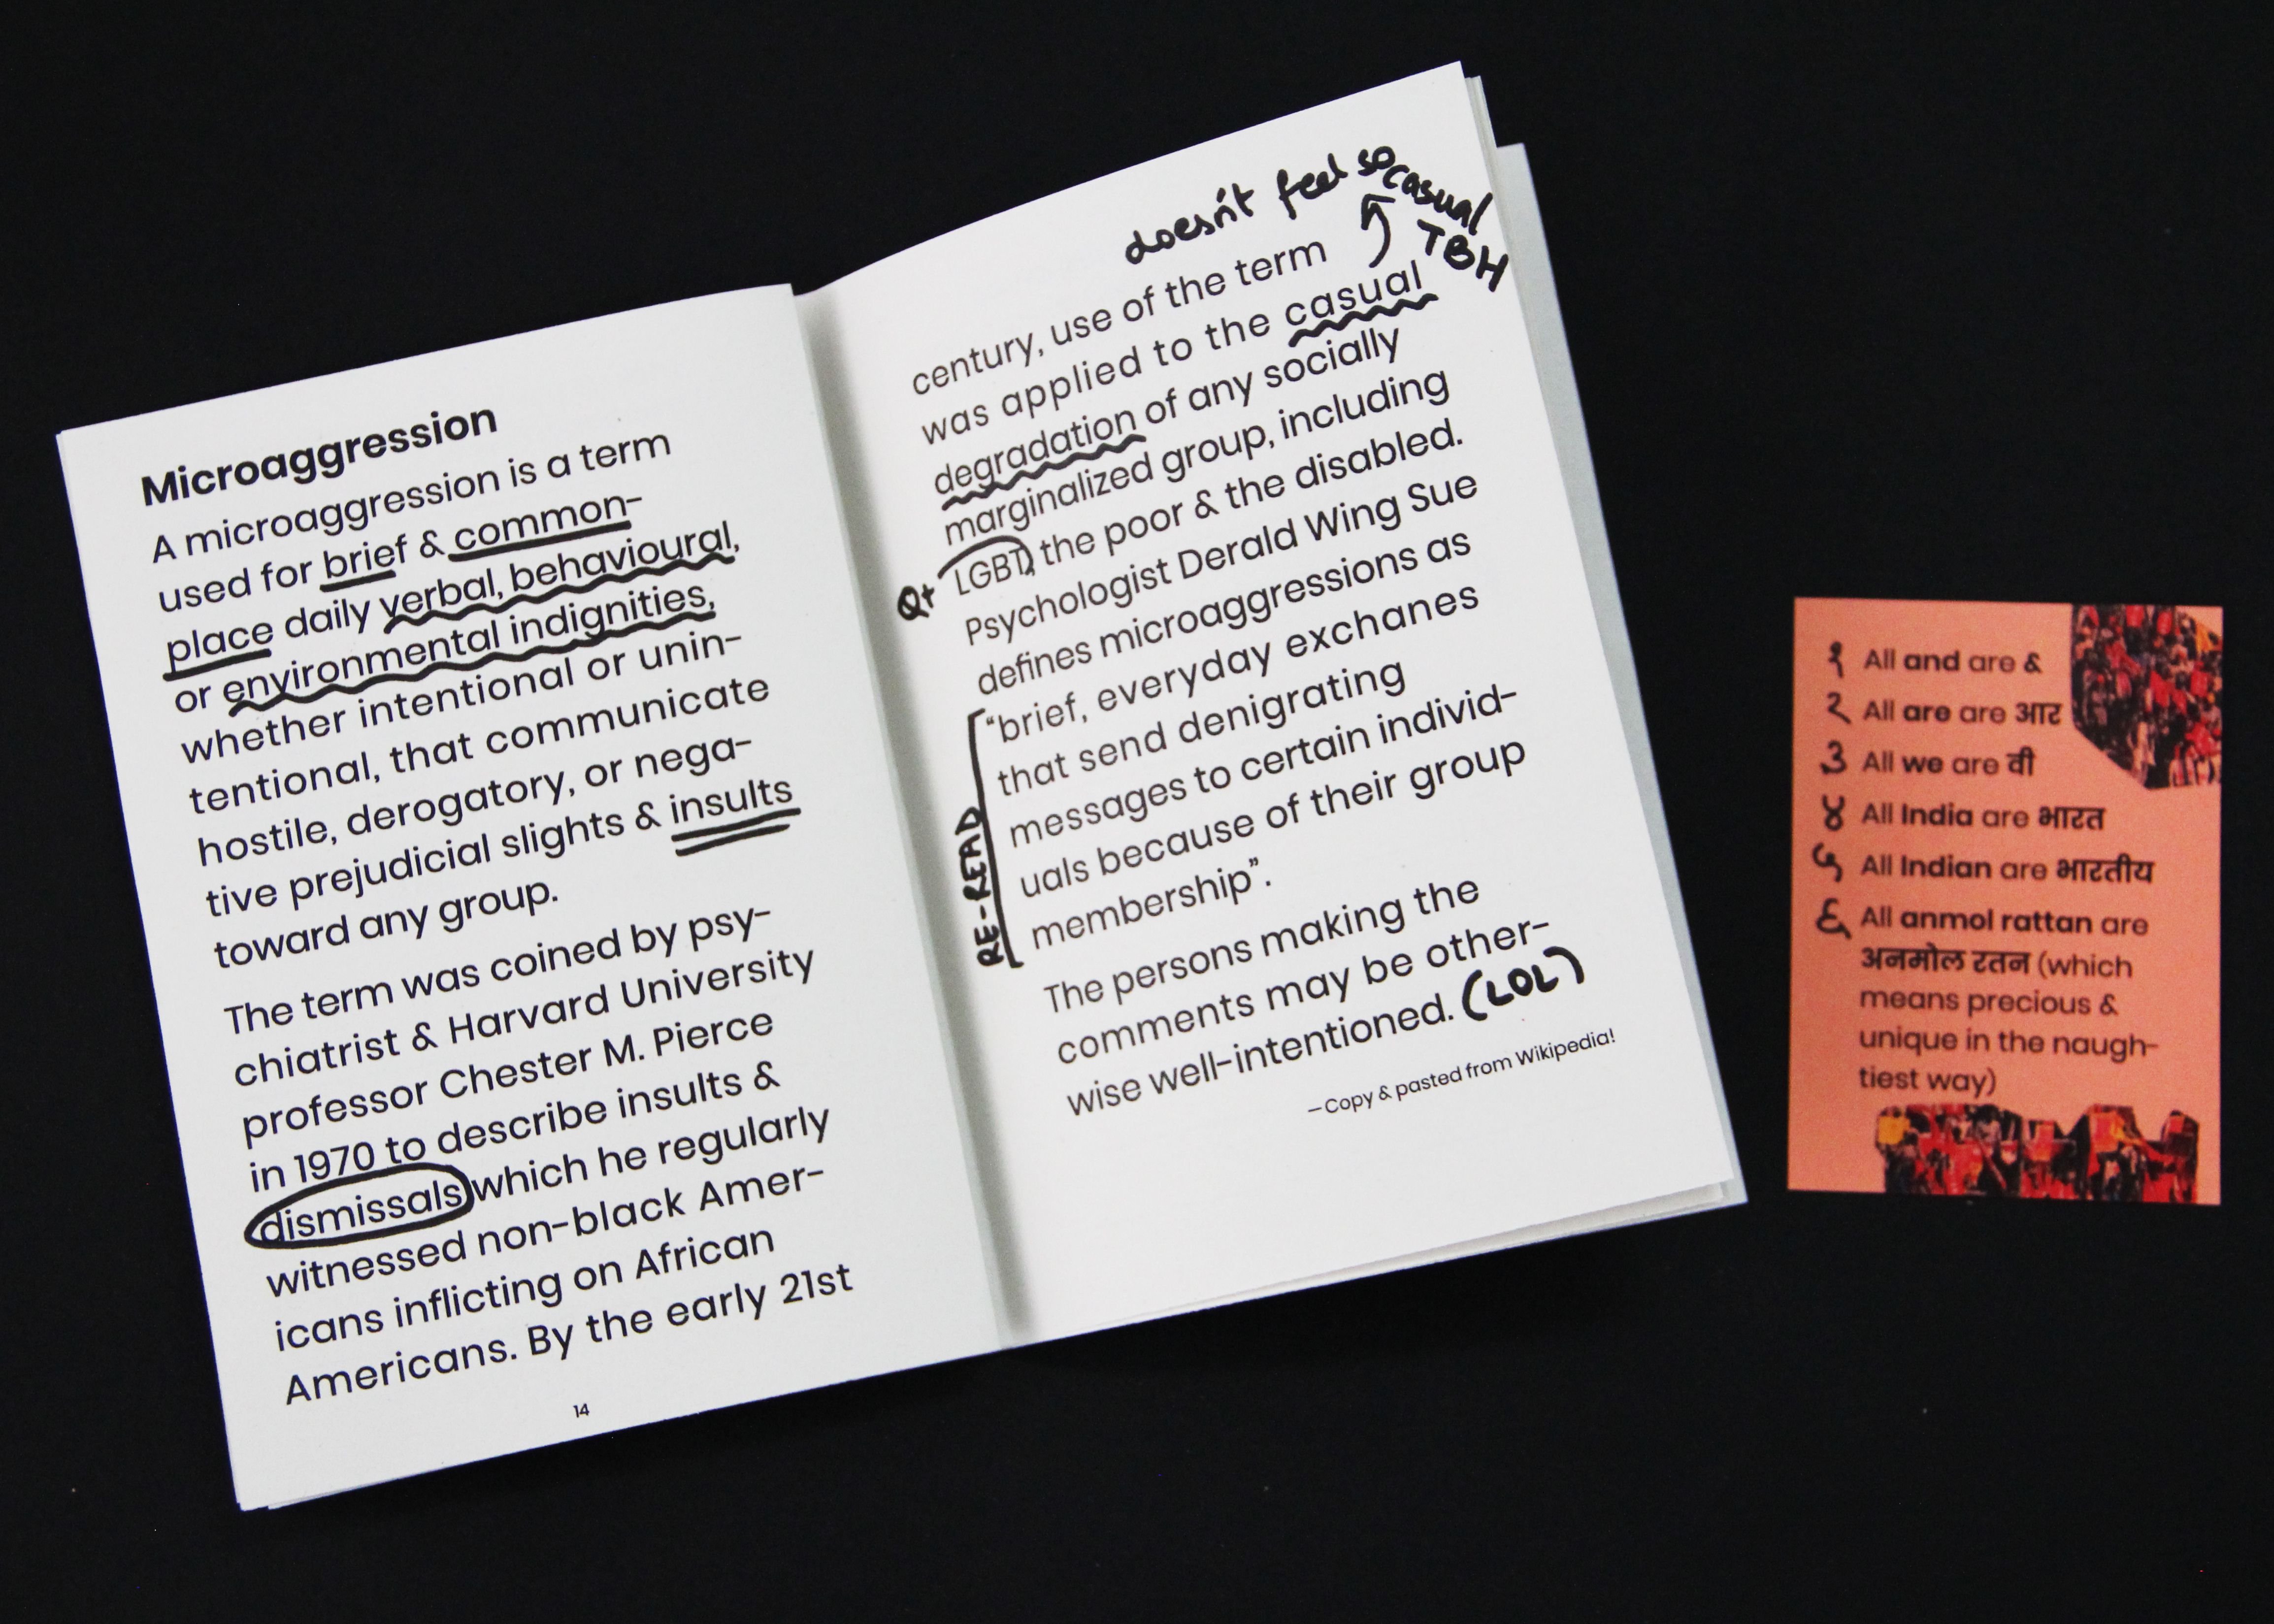 Microaggression
A microaggression is a term
used for brief & common-
place daily verbal, behavioural,
or environmental indignities,
whether intentional or unin-
tentional, that communicate
hostile, derogatory, or nega-
tive prejudicial slights & insults
toward any group.
The term was coined by psy-
chiatrist & Harvard University
professor Chester M. Pierce
in 1970 to describe insults &
dismissals which he regularly
witnessed non-black Amer-
icans inflicting on African
Americans. By the early 21st
14
doesn't feel so casual
TBH
century, use of the term
was applied to the casual
degradation of any socially
marginalized group, including
Q+ LGBT, the poor & the disabled.
Psychologist Derald Wing Sue
defines microaggressions as
"brief, everyday exchanes
that send denigrating
messages to certain individ-
uals because of their group
membership".
RE-READ
The persons making the
comments may be other-
wise well-intentioned. (LOL)
—Copy & pasted from Wikipedia!
१ All and are &
२ All are are आर
३ All we are वी
४ All India are भारत
५ All Indian are भारतीय
६ All anmol rattan are
अनमोल रतन (which
means precious &
unique in the naugh-
tiest way)